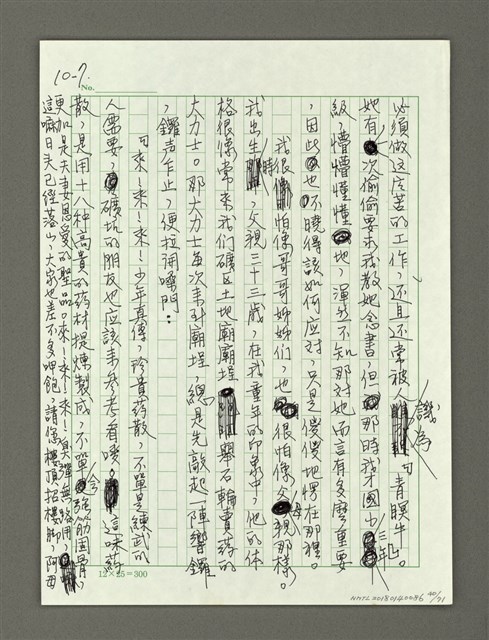 10-7.
No.
必須做这麼苦的工作，还且还常被人譏為「青瞑牛」。
她有一次偷偷要求我教她念書，但那時我才國小三年
級，懵懵懂懂地，渾然不知那对她而言有多麼重要
，因此也不曉得該如何应对，只是傻傻地愣在那裡。
我很怕像哥哥姊姊們，也很怕像父母親那樣。
我出生時，父親三十三歲，在我童年的印象中，他的体
格很像常來我们礦区土地廟廟埕舉石輪賣药的
大力士。那大力士每次来到廟埕，總是先敲起一陣響鑼
，鑼声乍止，便拉開嗓門：
「來！來！來！少年真傳，珍貴药散，不單是練武的
人需要，礦坑的朋友也应該来參考看嘜。這味药
散，是用十八种高貴的药材提煉製成，不單会強筋固骨，
更加是夫妻恩爱的聖品。來！來！來！
這嘛日头已經落山，大家也差不多呷飽，請您樓頂招樓腳，阿母
12×25=300
NMTL20180140086 40/71